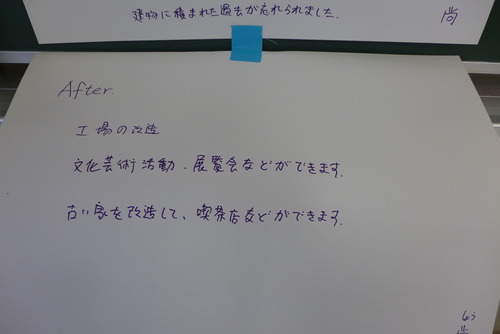 建物に積まれた過去が忘れられました.
尚
After.
工場の改造
文化芸術活動、展覧会などができます.
古い家を改造して、喫茶店などができます.